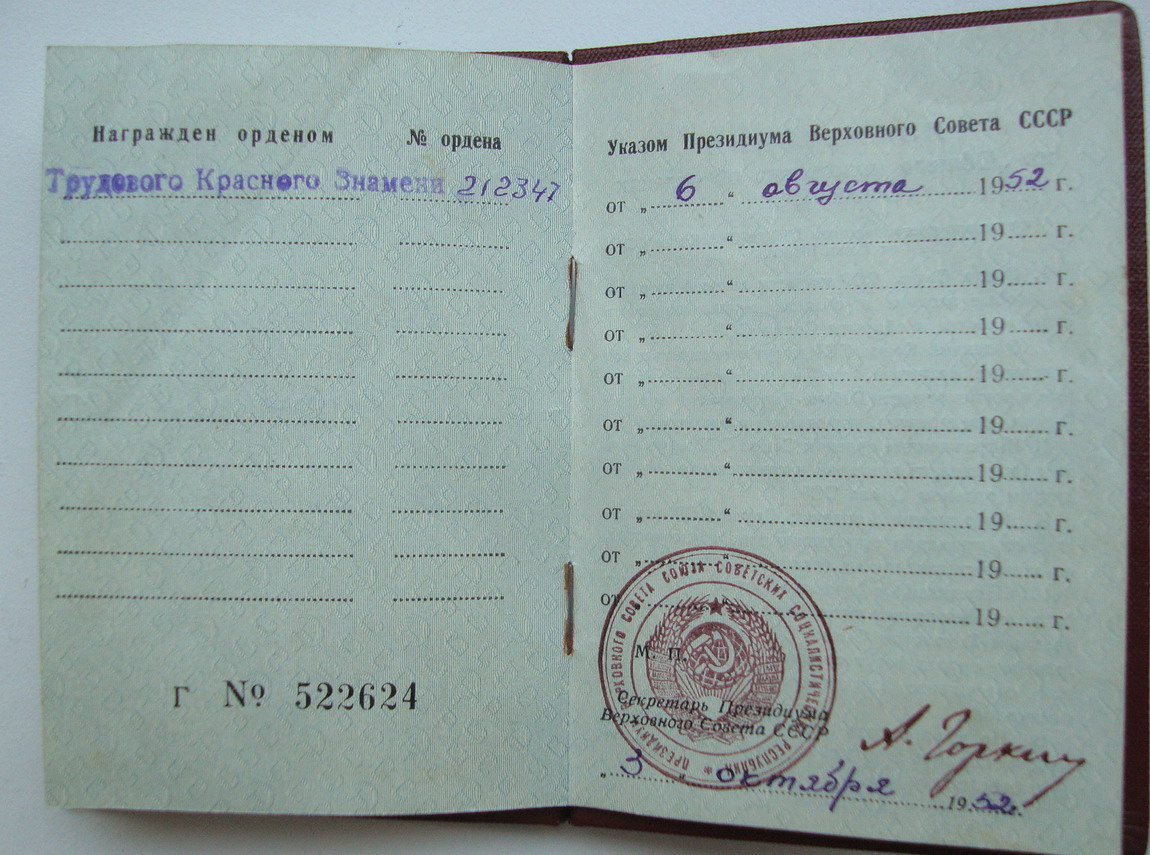 Награжден орденом № ордена
Трудового Красного Знамени 212347
г № 522624
Указом Президиума Верховного Совета СССР
от „ 6 “ августа 1952 г.
от „ “ 19 г.
от „ “ 19 г.
от „ “ 19 г.
от „ “ 19 г.
от „ “ 19 г.
от „ “ 19 г.
от „ “ 19 г.
от „ “ 19 г.
от „ “ 19 г.
ПРЕЗИДИУМ ВЕРХОВНОГО СОВЕТА СОЮЗА СОВЕТСКИХ СОЦИАЛИСТИЧЕСКИХ РЕСПУБЛИК *
М. П.
Секретарь Президиума
Верховного Совета СССР
А. Горкин
„ 3 “ октября 1952 г.